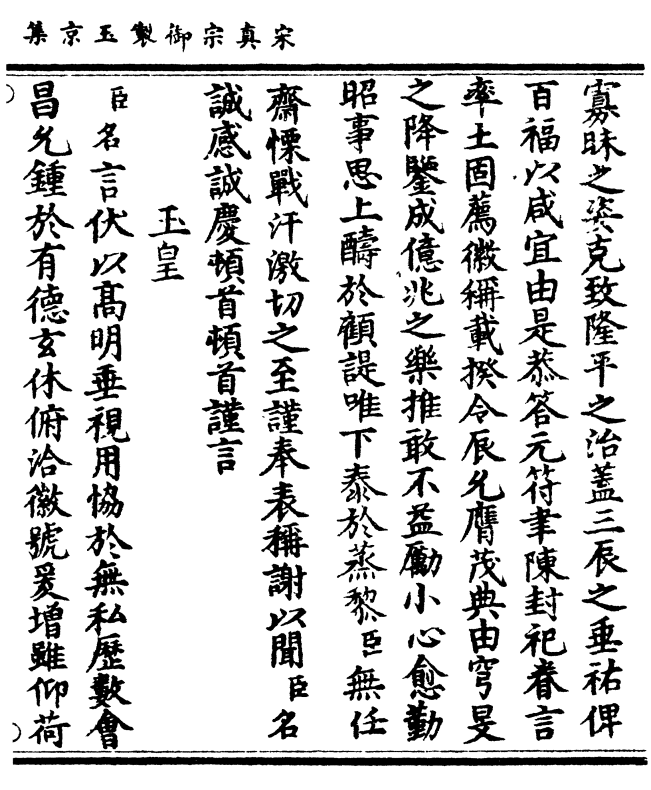 宋真宗御製玉京集
寡昧之姿克致隆平之治蓋三辰之垂祐俾
百福以咸宜由是恭答元符聿陳封祀眷言
率土固薦徽稱載揆令辰允膺茂典由穹旻
之降鑒成億兆之樂推敢不益勵小心愈勤
昭事思上醻於顧諟唯下泰於蒸黎臣無任
齋慄戰汗激切之至謹奉表稱謝以聞臣名
誠感誠慶頓首頓首謹言
玉皇
臣名言伏以高明垂視用協於無私歷數會
昌允鍾於有德玄休俯洽徽號爰增雖仰荷